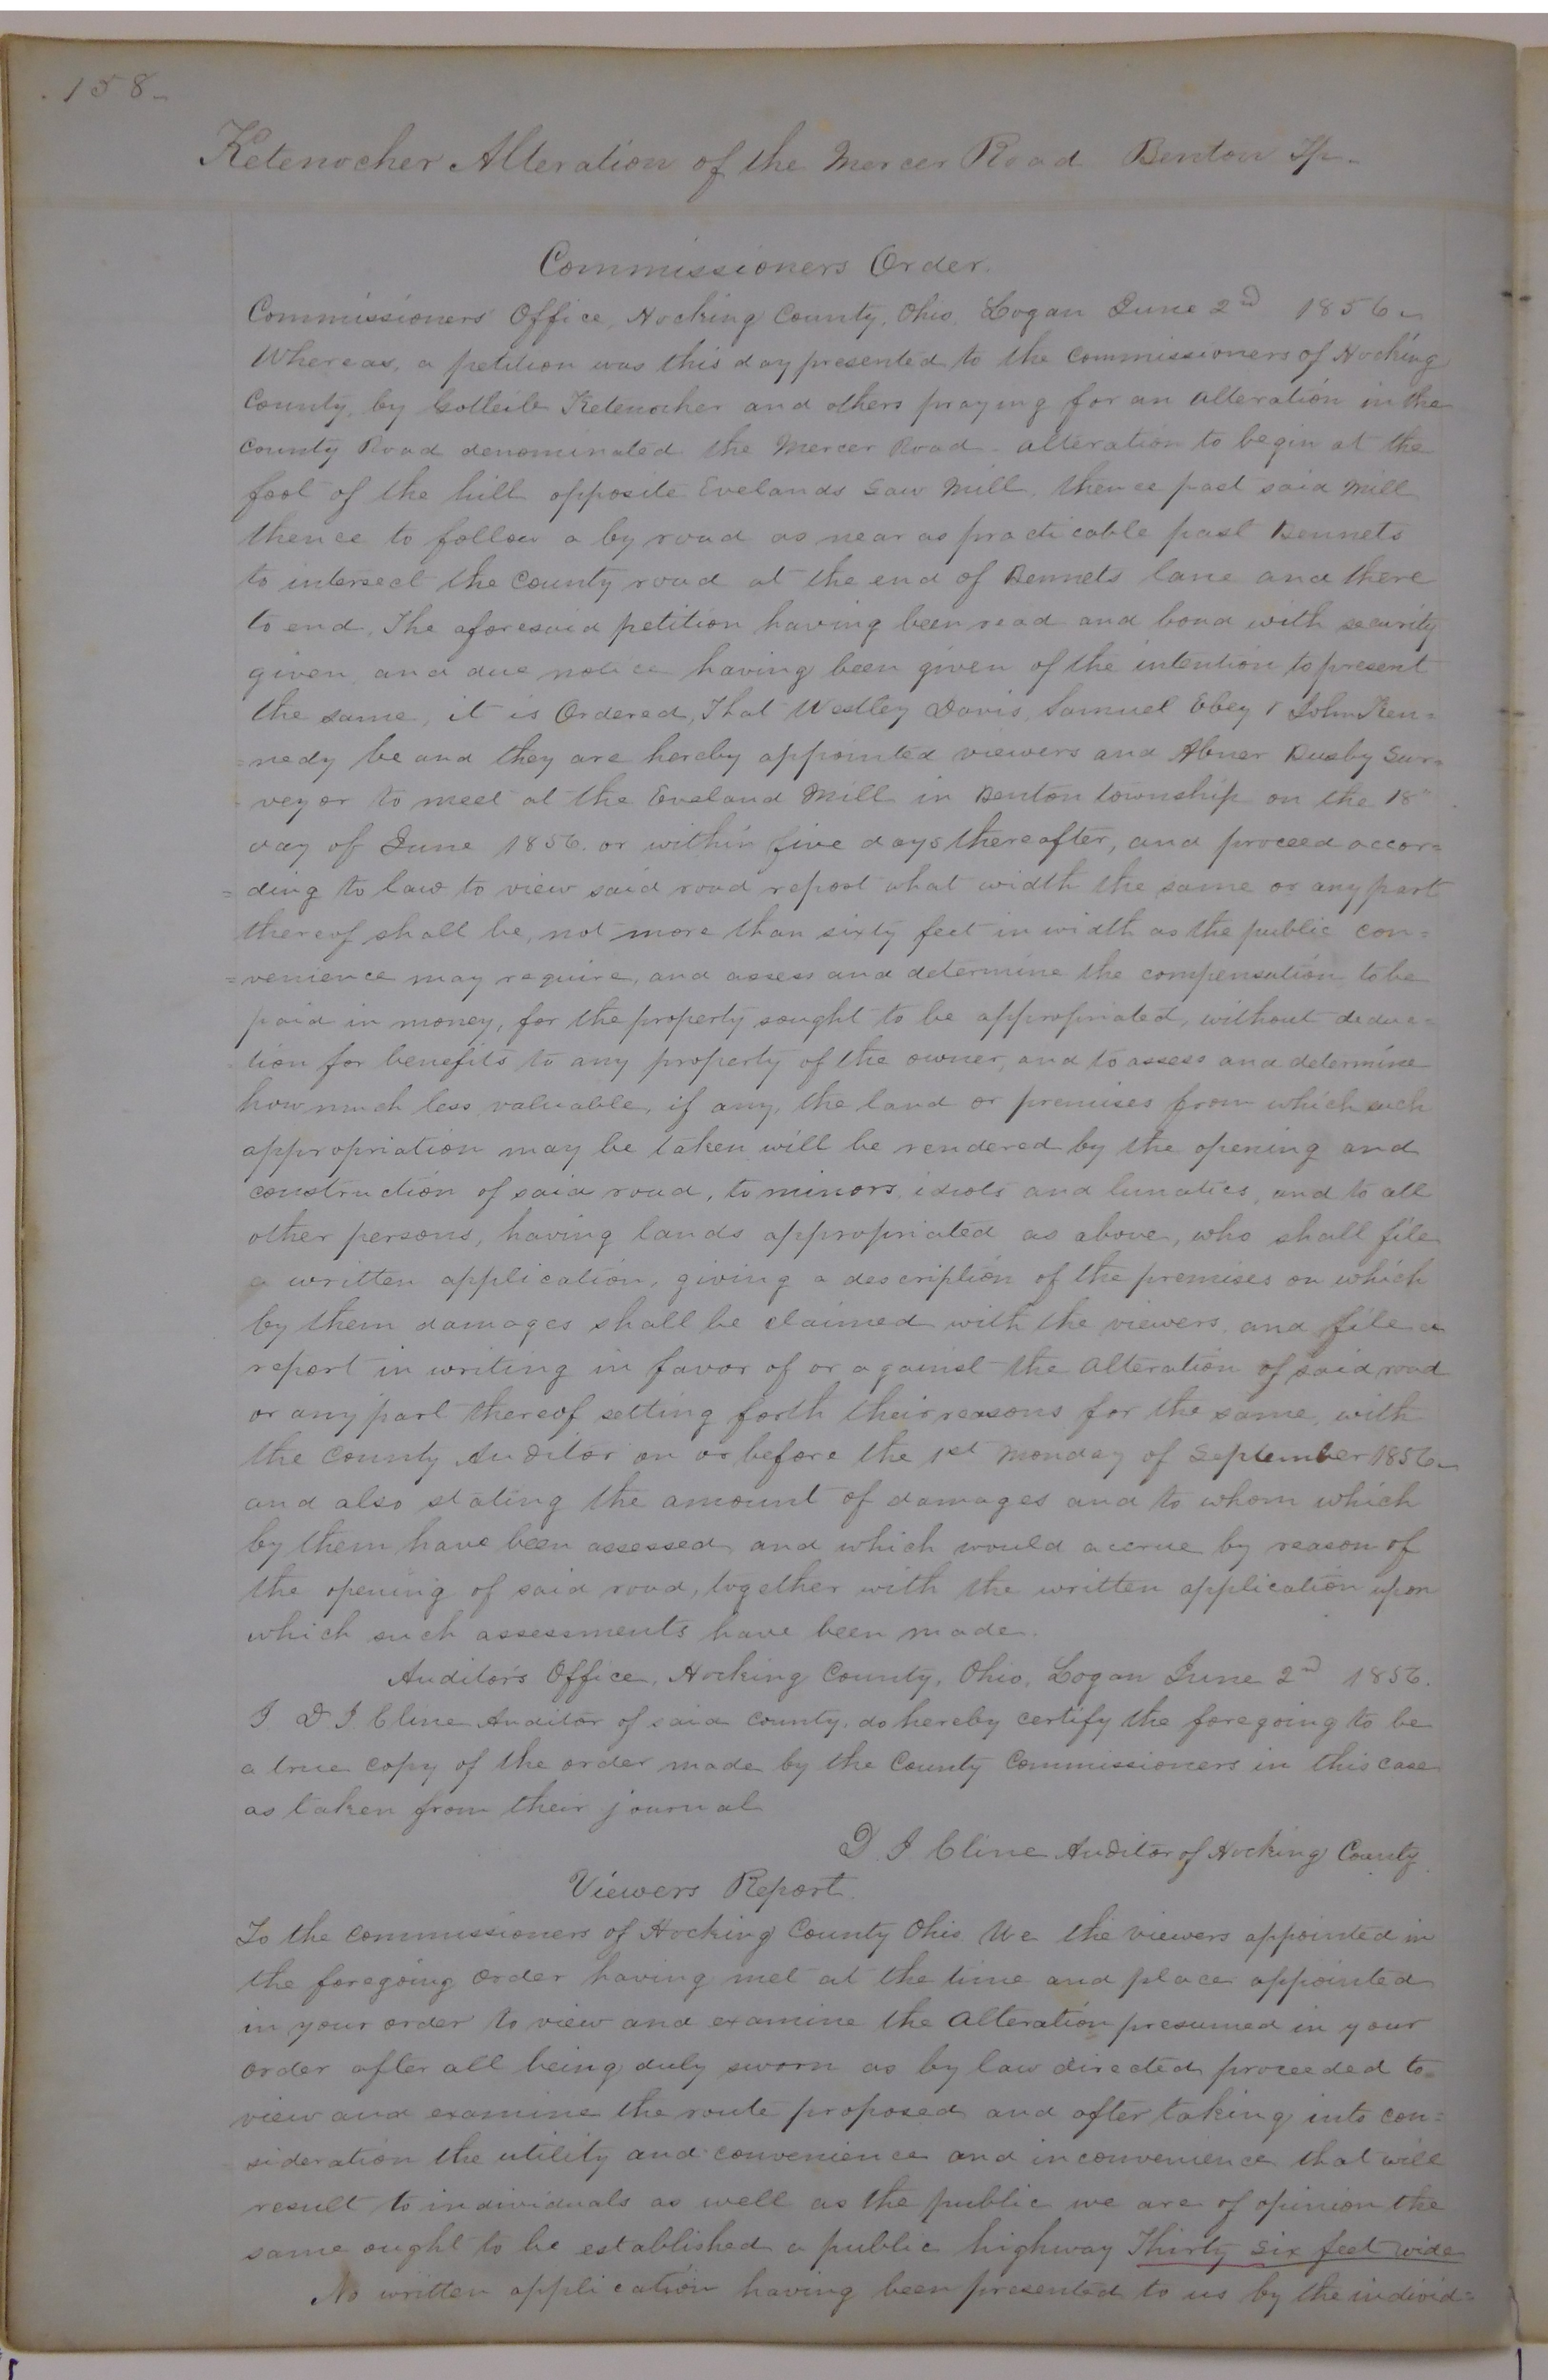 .158-
Ketenocher Alteration of the Mercer Road Benton Tp.
Commissioners Order.
Commissioners' Office, Hocking County, Ohio, Logan June 2nd 1856.
Whereas, a petition was this day presented to the Commissioners of Hocking
County, by Gotleib Ketenocher and others praying for an alteration in the
County Road denominated the Mercer Road - alteration to begin at the
foot of the hill opposite Evelands Saw Mill, thence past said Mill
thence to follow a by road as near as practicable past Bennets
to intersect the County road at the end of Bennets lane and there
to end. The aforesaid petition having been read and bond with security
given, and due notice having been given of the intention to present
the same, it is Ordered, That Westley Davis, Samuel Ebey & John Ken=
=nedy be and they are hereby appointed viewers and Abner Busby Sur=
veyor to meet at the Eveland Mill in Benton township on the 18"
day of June 1856. or within five days thereafter, and proceed accor=
=ding to law to view said road report what width the same or any part
thereof shall be, not more than sixty feet in width as the public con=
=venience may require, and assess and determine the compensation to be
paid in money, for the property sought to be appropriated, without deduc=
tion for benefits to any property of the owner, and to assess and determine
how much less valuable, if any, the land or premises from which such
appropriation may be taken will be rendered by the opening and
construction of said road, to minors, idiots and lunatics, and to all
other persons, having lands appropriated as above, who shall file
a written application, giving a description of the premises on which
by them damages shall be claimed with the viewers, and file a
report in writing in favor of or against the alteration of said road
or any part thereof setting forth their reasons for the same, with
the County Auditor on or before the 1st Monday of September 1856
and also stating the amount of damages and to whom which
by them have been assessed, and which would accrue by reason of
the opening of said road, together with the written application upon
which such assessments have been made.
Auditor's Office, Hocking County, Ohio, Logan June 2nd 1856.
I D J Cline Auditor of said County, do hereby certify the foregoing to be
a true copy of the order made by the County Commissioners in this case
as taken from their journal
D. J. Cline Auditor of Hocking County
Viewers Report.
To the Commissioners of Hocking County Ohio. We the viewers appointed in
the foregoing order having met at the time and place appointed
in your order to view and examine the alteration presumed in your
order after all being duly sworn as by law directed, proceeded to
view and examine the route proposed and after taking into con=
sideration the utility and convenience and inconvenience that will
result to individuals as well as the public we are of opinion the
same ought to be established a public highway Thirty six feet wide
No written application having been presented to us by the individ=